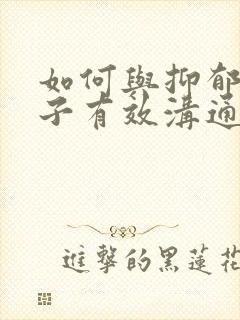 如何與抑郁
子有效溝通
進擊的黑蓮花